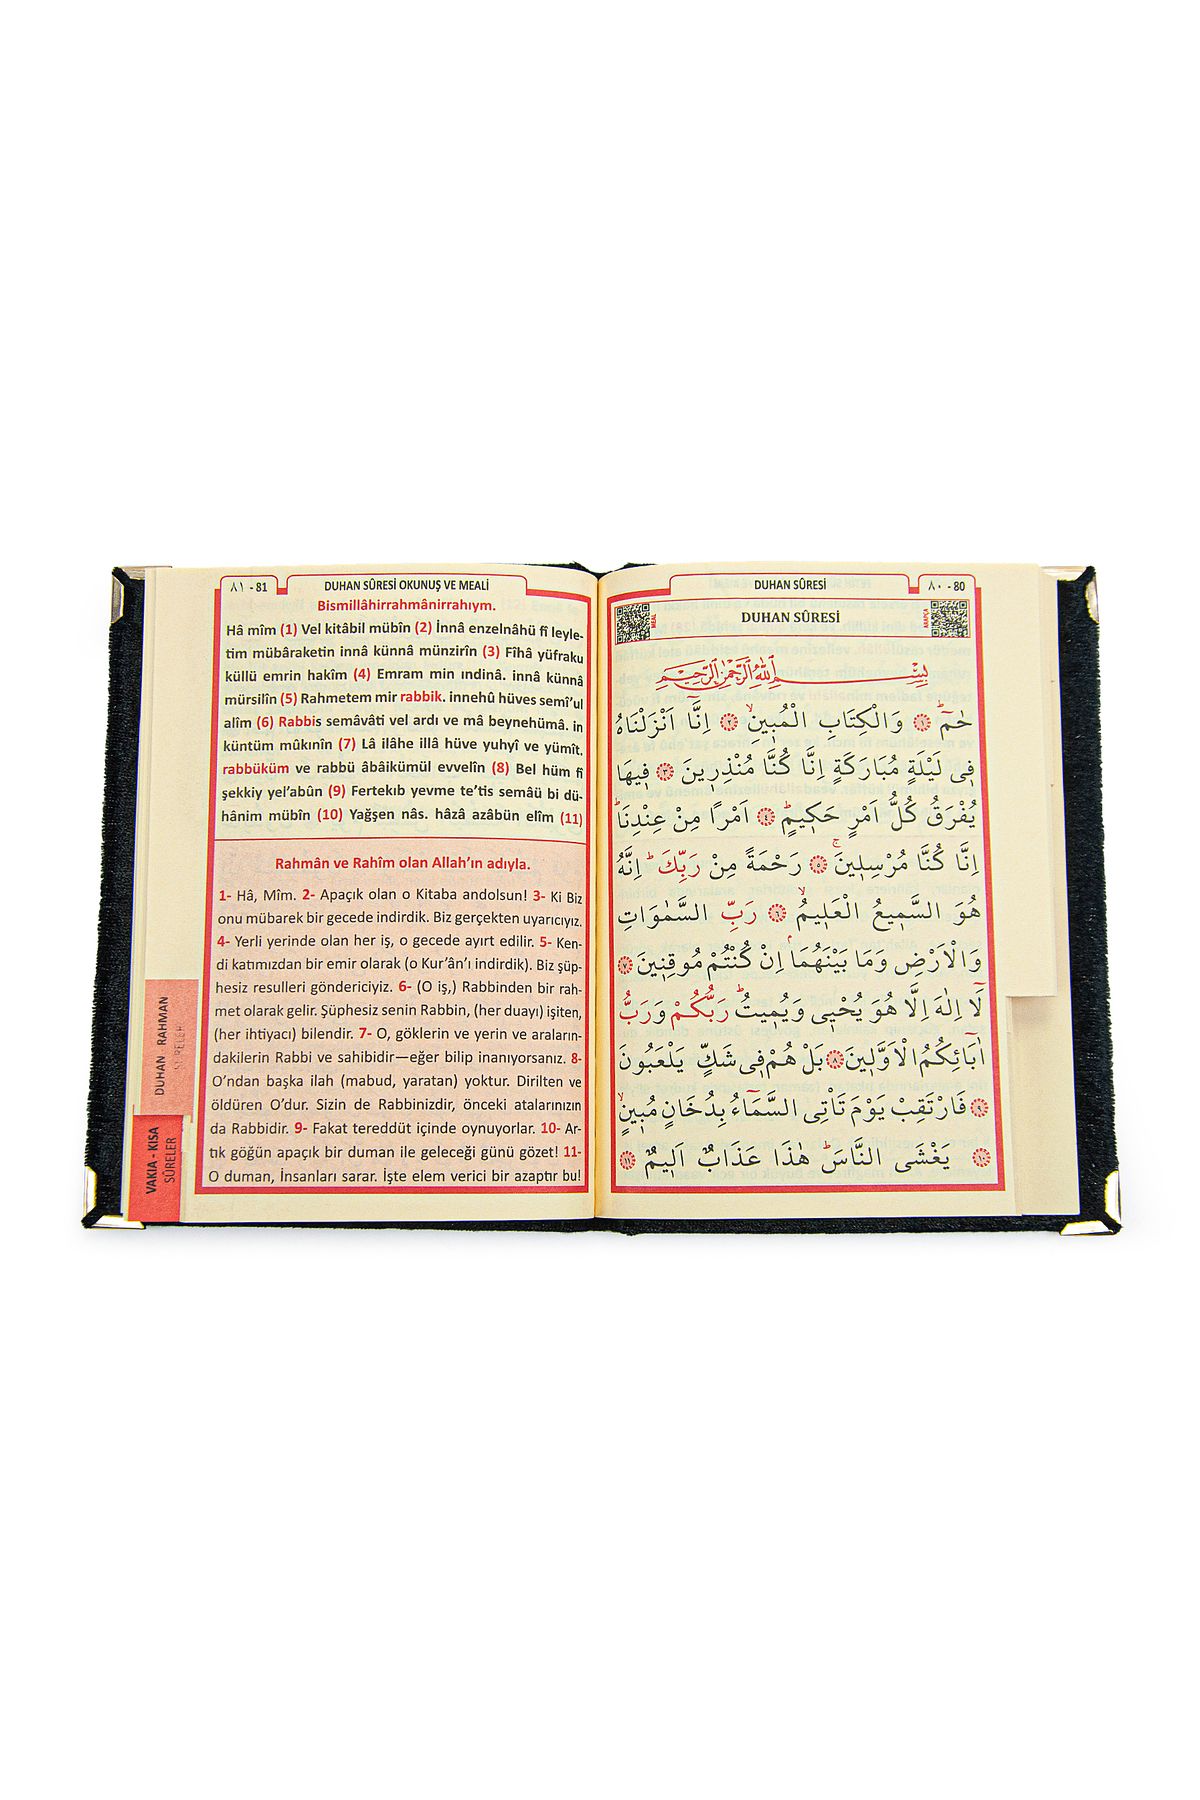 ٨١ - 81
DUHAN SÛRESİ OKUNUŞ VE MEALİ
Bismillâhirrahmânirrahıym.
Hâ mîm (1) Vel kitâbil mübîn (2) İnnâ enzelnâhü fî leyle-
tim mübâraketin innâ künnâ münzirîn (3) Fîhâ yüfraku
küllü emrin hakîm (4) Emram min ındinâ. innâ künnâ
mürsilîn (5) Rahmetem mir rabbik. innehû hüves semî'ul
alîm (6) Rabbis semâvâti vel ardı ve mâ beynehümâ. in
küntüm mûkınîn (7) Lâ ilâhe illâ hüve yuhyî ve yümît.
rabbüküm ve rabbü âbâikümül evvelîn (8) Bel hüm fî
şekkiy yel'abûn (9) Fertekıb yevme te'tis semâü bi dü-
hânim mübîn (10) Yağşen nâs. hâzâ azâbün elîm (11)
Rahmân ve Rahîm olan Allah'ın adıyla.
1- Hâ, Mîm. 2- Apaçık olan o Kitaba andolsun! 3- Ki Biz
onu mübarek bir gecede indirdik. Biz gerçekten uyarıcıyız.
4- Yerli yerinde olan her iş, o gecede ayırt edilir. 5- Ken-
di katımızdan bir emir olarak (o Kur'ân'ı indirdik). Biz şüp-
hesiz resulleri göndericiyiz. 6- (O iş,) Rabbinden bir rah-
met olarak gelir. Şüphesiz senin Rabbin, (her duayı) işiten,
(her ihtiyacı) bilendir. 7- O, göklerin ve yerin ve araların-
dakilerin Rabbi ve sahibidir—eğer bilip inanıyorsanız. 8-
O'ndan başka ilah (mabud, yaratan) yoktur. Dirilten ve
öldüren O'dur. Sizin de Rabbinizdir, önceki atalarınızın
da Rabbidir. 9- Fakat tereddüt içinde oynuyorlar. 10- Ar-
tık göğün apaçık bir duman ile geleceği günü gözet! 11-
O duman, İnsanları sarar. İşte elem verici bir azaptır bu!
DUHAN - RAHMAN
SÛRELER
VAKIA - KISA
SÛRELER
DUHAN SÛRESİ
٨٠ - 80
MEAL
DUHAN SÛRESİ
ARAPÇA
بِسْمِ اللّٰهِ الرَّحْمٰنِ الرَّحِيمِ
حٰمٓ ۚ ﴿١﴾ وَالْكِتَابِ الْمُبٖينِۙ ﴿٢﴾ اِنَّٓا اَنْزَلْنَاهُ
فٖى لَيْلَةٍ مُبَارَكَةٍ اِنَّا كُنَّا مُنْذِرٖينَ ﴿٣﴾ فٖيهَا
يُفْرَقُ كُلُّ اَمْرٍ حَكٖيمٍۚ ﴿٤﴾ اَمْرًا مِنْ عِنْدِنَاۜ
اِنَّا كُنَّا مُرْسِلٖينَۚ ﴿٥﴾ رَحْمَةً مِنْ رَبِّكَۜ اِنَّهُ
هُوَ السَّمٖيعُ الْعَلٖيمُۙ ﴿٦﴾ رَبِّ السَّمٰوَاتِ
وَالْاَرْضِ وَمَا بَيْنَهُمَاۢ اِنْ كُنْتُمْ مُوقِنٖينَ ﴿٧﴾
لَٓا اِلٰهَ اِلَّا هُوَ يُحْيٖى وَيُمٖيتُۜ رَبُّكُمْ وَرَبُّ
اٰبَٓائِكُمُ الْاَوَّلٖينَ ﴿٨﴾ بَلْ هُمْ فٖى شَكٍّ يَلْعَبُونَ
﴿٩﴾ فَارْتَقِبْ يَوْمَ تَاْتِى السَّمَٓاءُ بِدُخَانٍ مُبٖينٍۙ
﴿١٠﴾ يَغْشَى النَّاسَۜ هٰذَا عَذَابٌ اَلٖيمٌ ﴿١١﴾